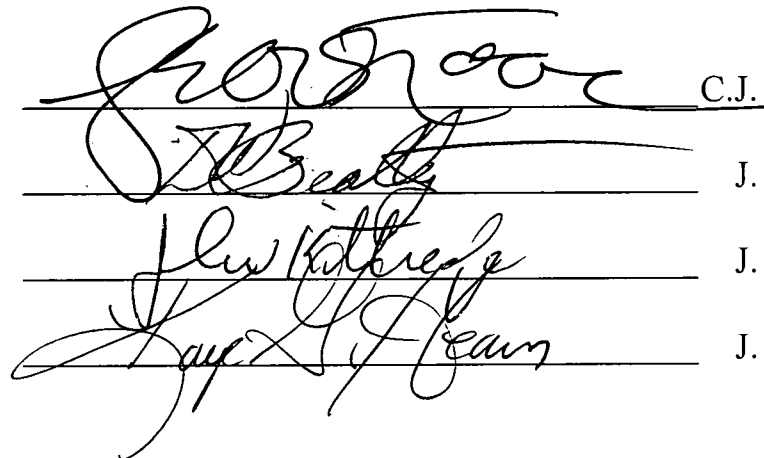 C.J.
DWBeatty J.
John Kittredge J.
Kaye G. Hearn J.